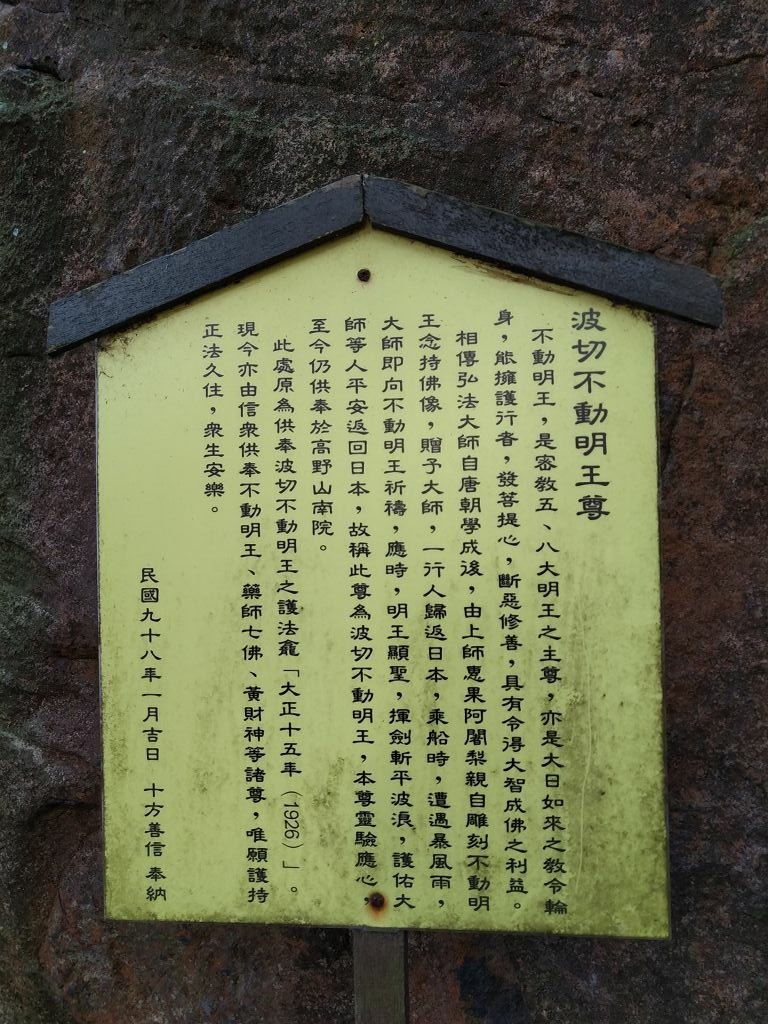 波切不動明王尊
不動明王，是密教五、八大明王之主尊，亦是大日如來之教令輪
身，能擁護行者，發菩提心，斷惡修善，具有令得大智成佛之利益。
相傳弘法大師自唐朝學成後，由上師惠果阿闍梨親自雕刻不動明
王念持佛像，贈予大師，一行人歸返日本，乘船時，遭遇暴風雨，
大師即向不動明王祈禱，應時，明王顯聖，揮劍斬平波浪，護佑大
師等人平安返回日本，故稱此尊為波切不動明王，本尊靈驗應心，
至今仍供奉於高野山南院。
此處原為供奉波切不動明王之護法龕「大正十五年（1926）」。
現今亦由信衆供奉不動明王、藥師七佛、黃財神等諸尊，唯願護持
正法久住，衆生安樂。
民國九十八年一月吉日 十方善信 奉納